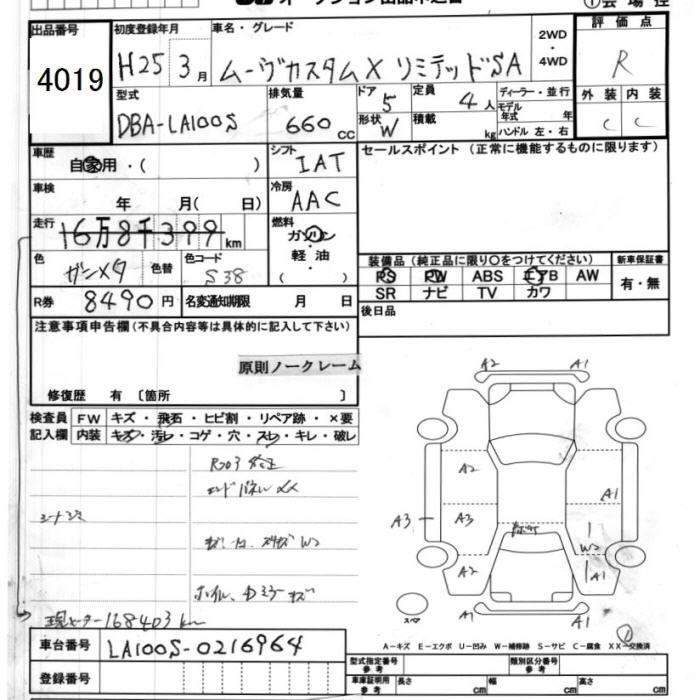 出品番号
4019
初度登録年月
H25 3月
車名・グレード
ムーヴカスタムX リミテッドSA
2WD
・
4WD
評価点
R
型式
DBA-LA100S
排気量
660 cc
ドア
5
形状
W
定員
4人
積載
kg
ディーラー・並行
モデル年式 年
ハンドル 左・右
外装 内装
C C
車歴
自家用・( )
シフト
IAT
セールスポイント (正常に機能するものに限ります)
車検
年 月( 日)
冷房
AAC
走行
16万8千399km
燃料
ガソリン
・
軽油
( )
色
ガンメタ
色替
色コード
S38
装備品 (純正品に限り○をつけてください)
新車保証書
PS PW ABS エアB AW
SR ナビ TV カワ
有・無
R券 8490円
名変通知期限 月 日
後日品
注意事項申告欄 (不具合内容等は具体的に記入して下さい)
原則ノークレーム
修復歴 有 〔箇所 〕
検査員 FW キズ・飛石・ヒビ割・リペア跡・×要
記入欄 内装 キズ・汚レ・コゲ・穴・スレ・キレ・破レ
エンドパネルXX
ホイル、ドミラーキズ
現メーター168403km
車台番号 LA100S-0216964
登録番号
A2 A1
A2
A1
A3
A3
W2
A2
A1
A1 A1
スペア
①
A-キズ E-エクボ U-凹み W-補修跡 S-サビ C-腐食 XX-交換済
型式指定番号
参考
類別区分番号
参考
車庫証明用
参考
長さ cm 幅 cm 高さ cm